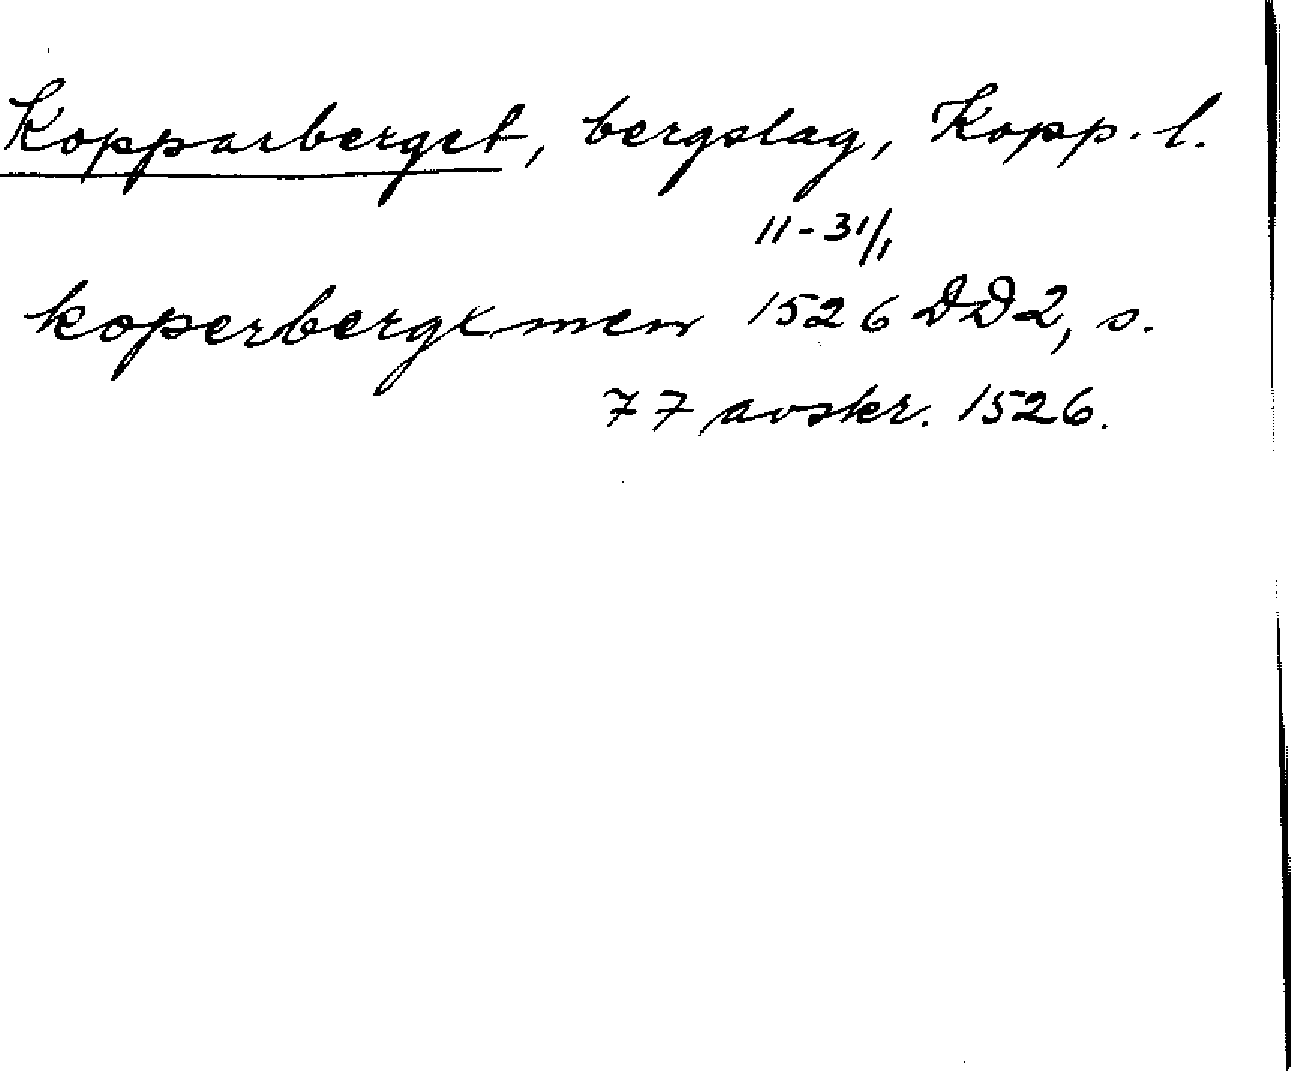 Kopparberget, bergslag, Kopp. l.
11-31/1
koperbergxmen 1526 DD2, s.
77 avskr. 1526.